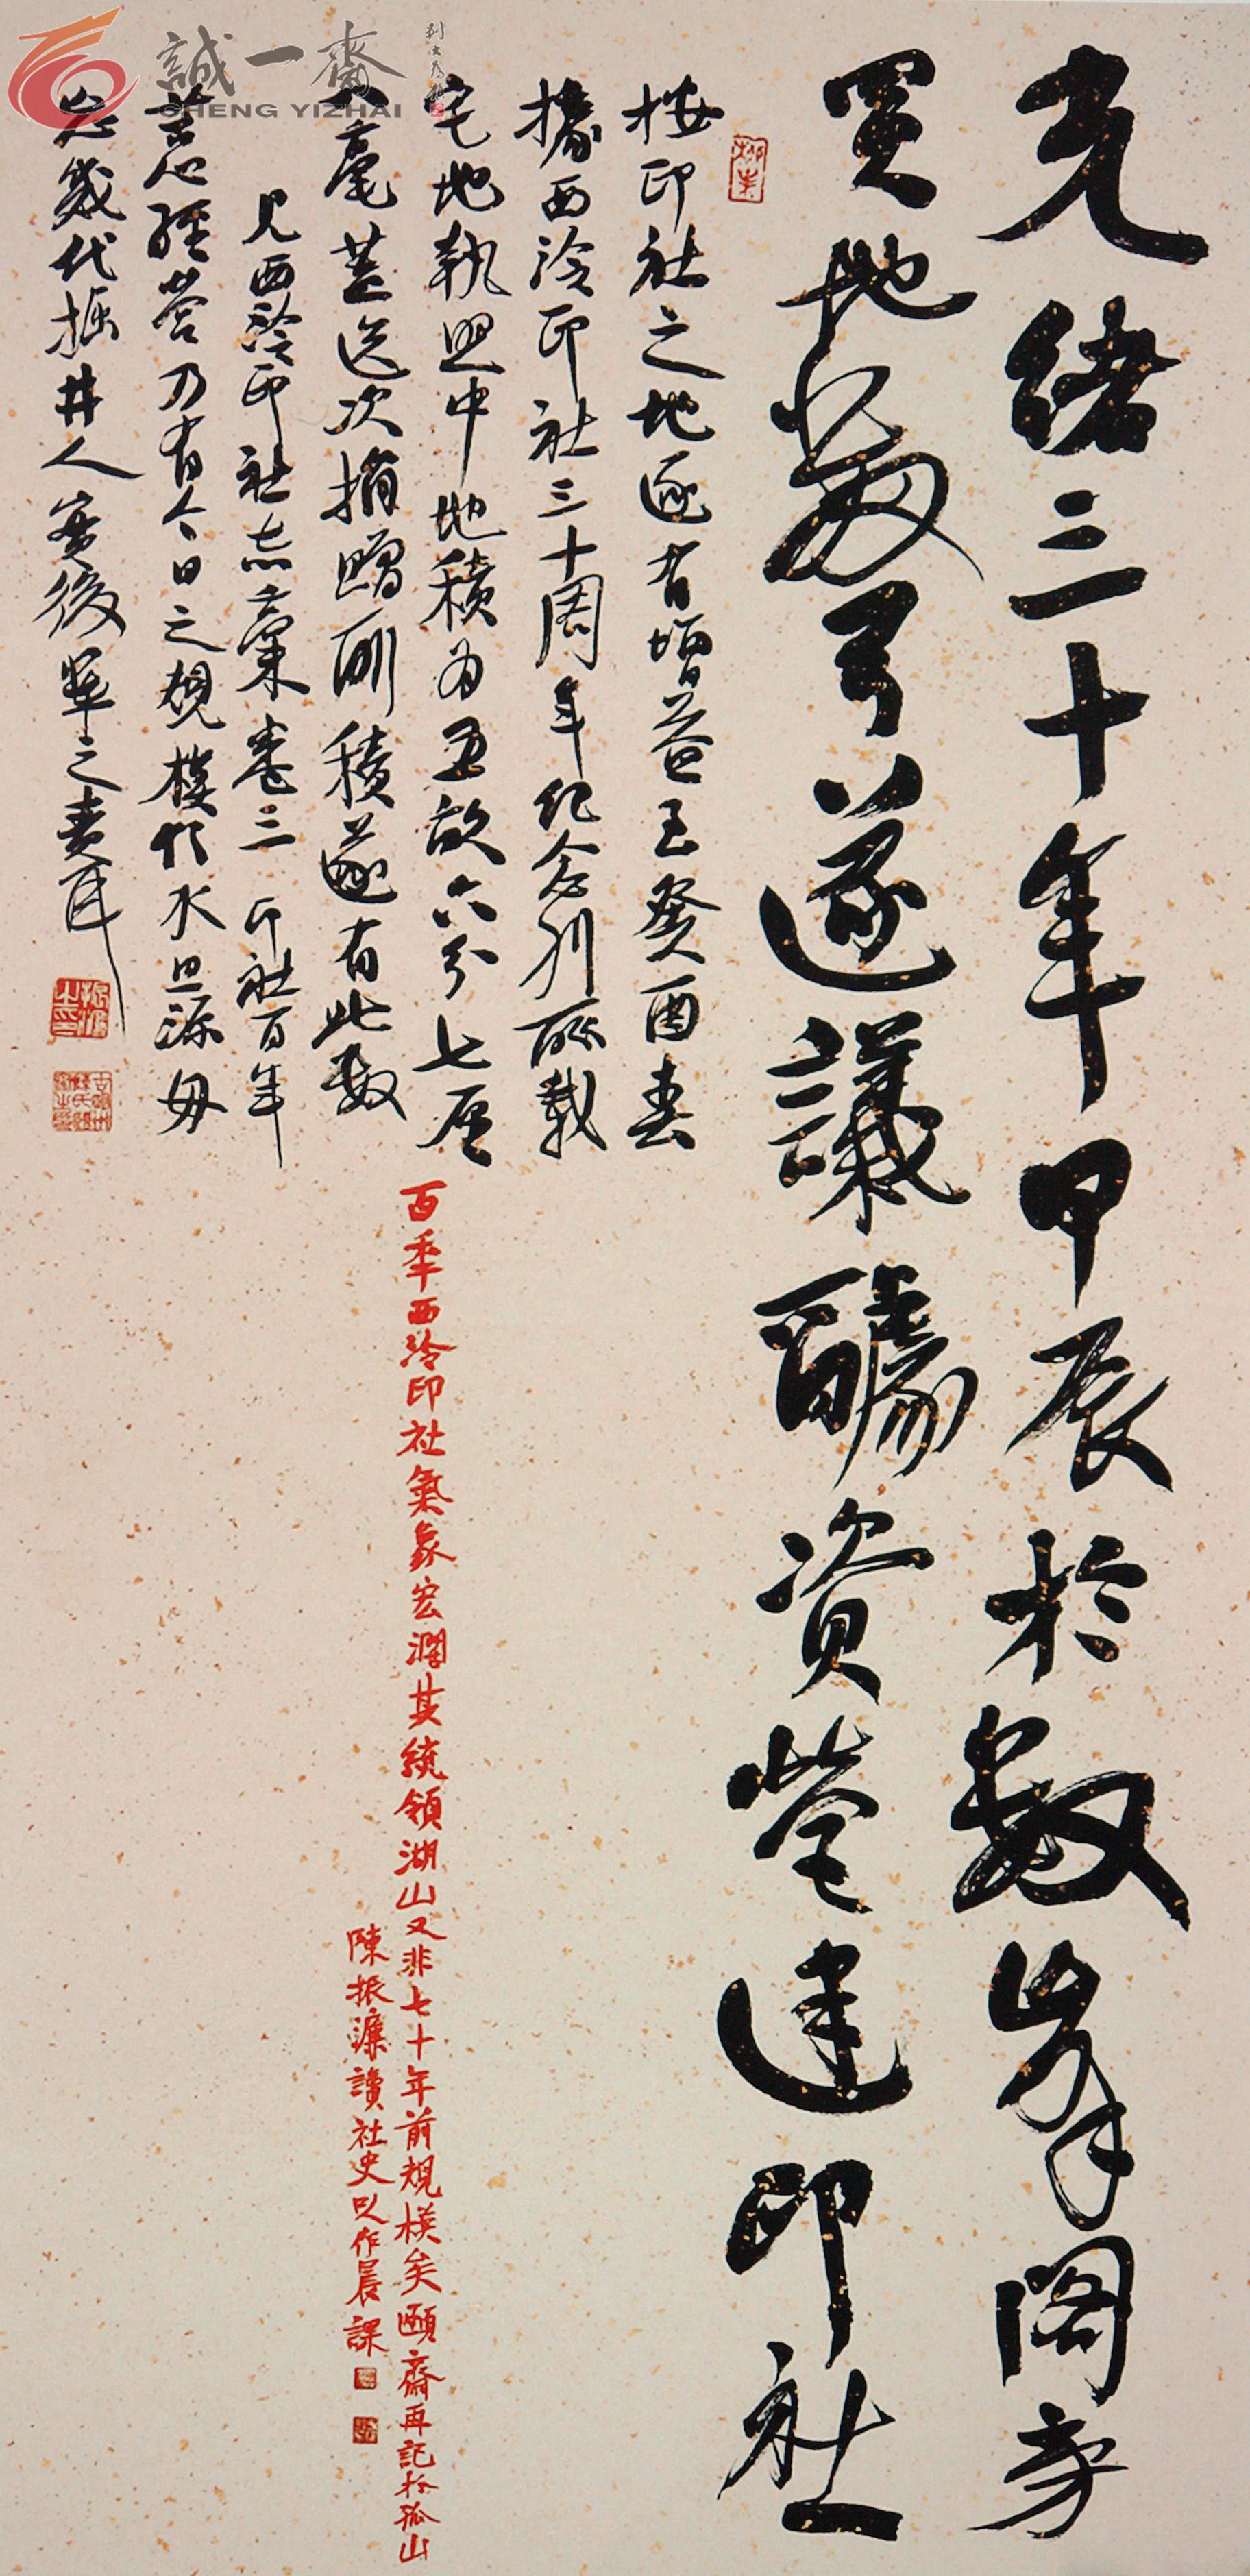 光緒三十年甲辰於數峯閣旁
買地數弓遂議醵資營建印社
按印社之地逐有增益至癸酉春
據西泠印社三十周年紀念刊所載
宅地執照中地積為五畝六分七厘
毫蓋迭次捐贈所積遂有此數
見西泠印社志稾卷三 印社百年
苦心經營乃有今日之規模飲水思源毋
忘幾代掘井人實後輩之責耳
百年西泠印社氣象宏濶其統領湖山又非七十年前規模矣頤齋再記於孤山
陳振濂讀社史以作晨課
誠一齋
CHENG YIZHAI